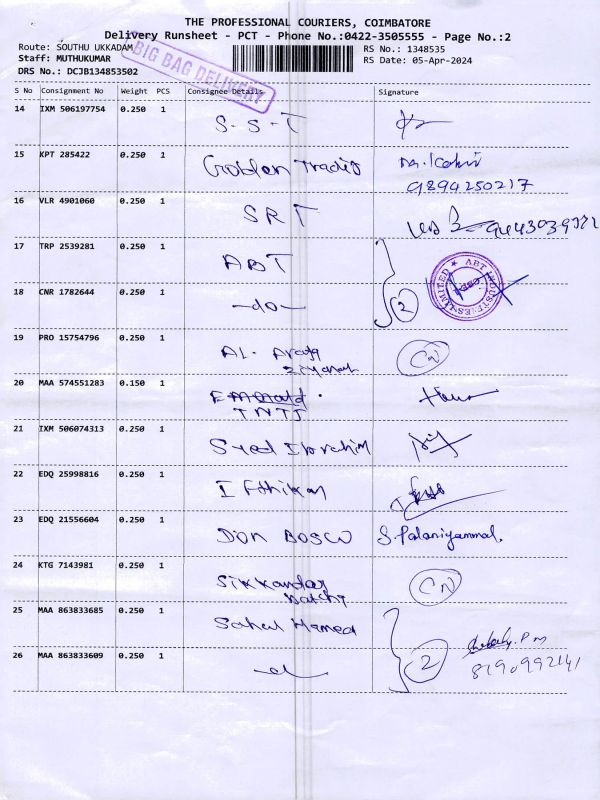 THE PROFESSIONAL COURIERS, COIMBATORE
Delivery Runsheet - PCT - Phone No.:0422-3505555 - Page No.:2
Route: SOUTHU UKKADAM
RS No.: 1348535
Staff: MUTHUKUMAR
RS Date: 05-Apr-2024
DRS No.: DCJB134853502
BIG BAG DELIVERY
S No Consignment No Weight PCS Consignee Details Signature
14 IXM 506197754 0.250 1 S-S-T
15 KPT 285422 0.250 1 Golden Tradis
9894250217
16 VLR 4901060 0.250 1 SRT
17 TRP 2539281 0.250 1 ABT
18 CNR 1782644 0.250 1 -do- 2
ABT INDUSTRIES LIMITED
19 PRO 15754796 0.250 1 AL. CN
20 MAA 574551283 0.150 1 Emerald
TNTJ
21 IXM 506074313 0.250 1 Syed Ibrahim
22 EDQ 25998816 0.250 1 I
23 EDQ 21556604 0.250 1 DON BOSCO S. Palaniyammal.
24 KTG 7143981 0.250 1 Sikkandar CN
25 MAA 863833685 0.250 1 Sahul Hamed
26 MAA 863833609 0.250 1 2
8190992141